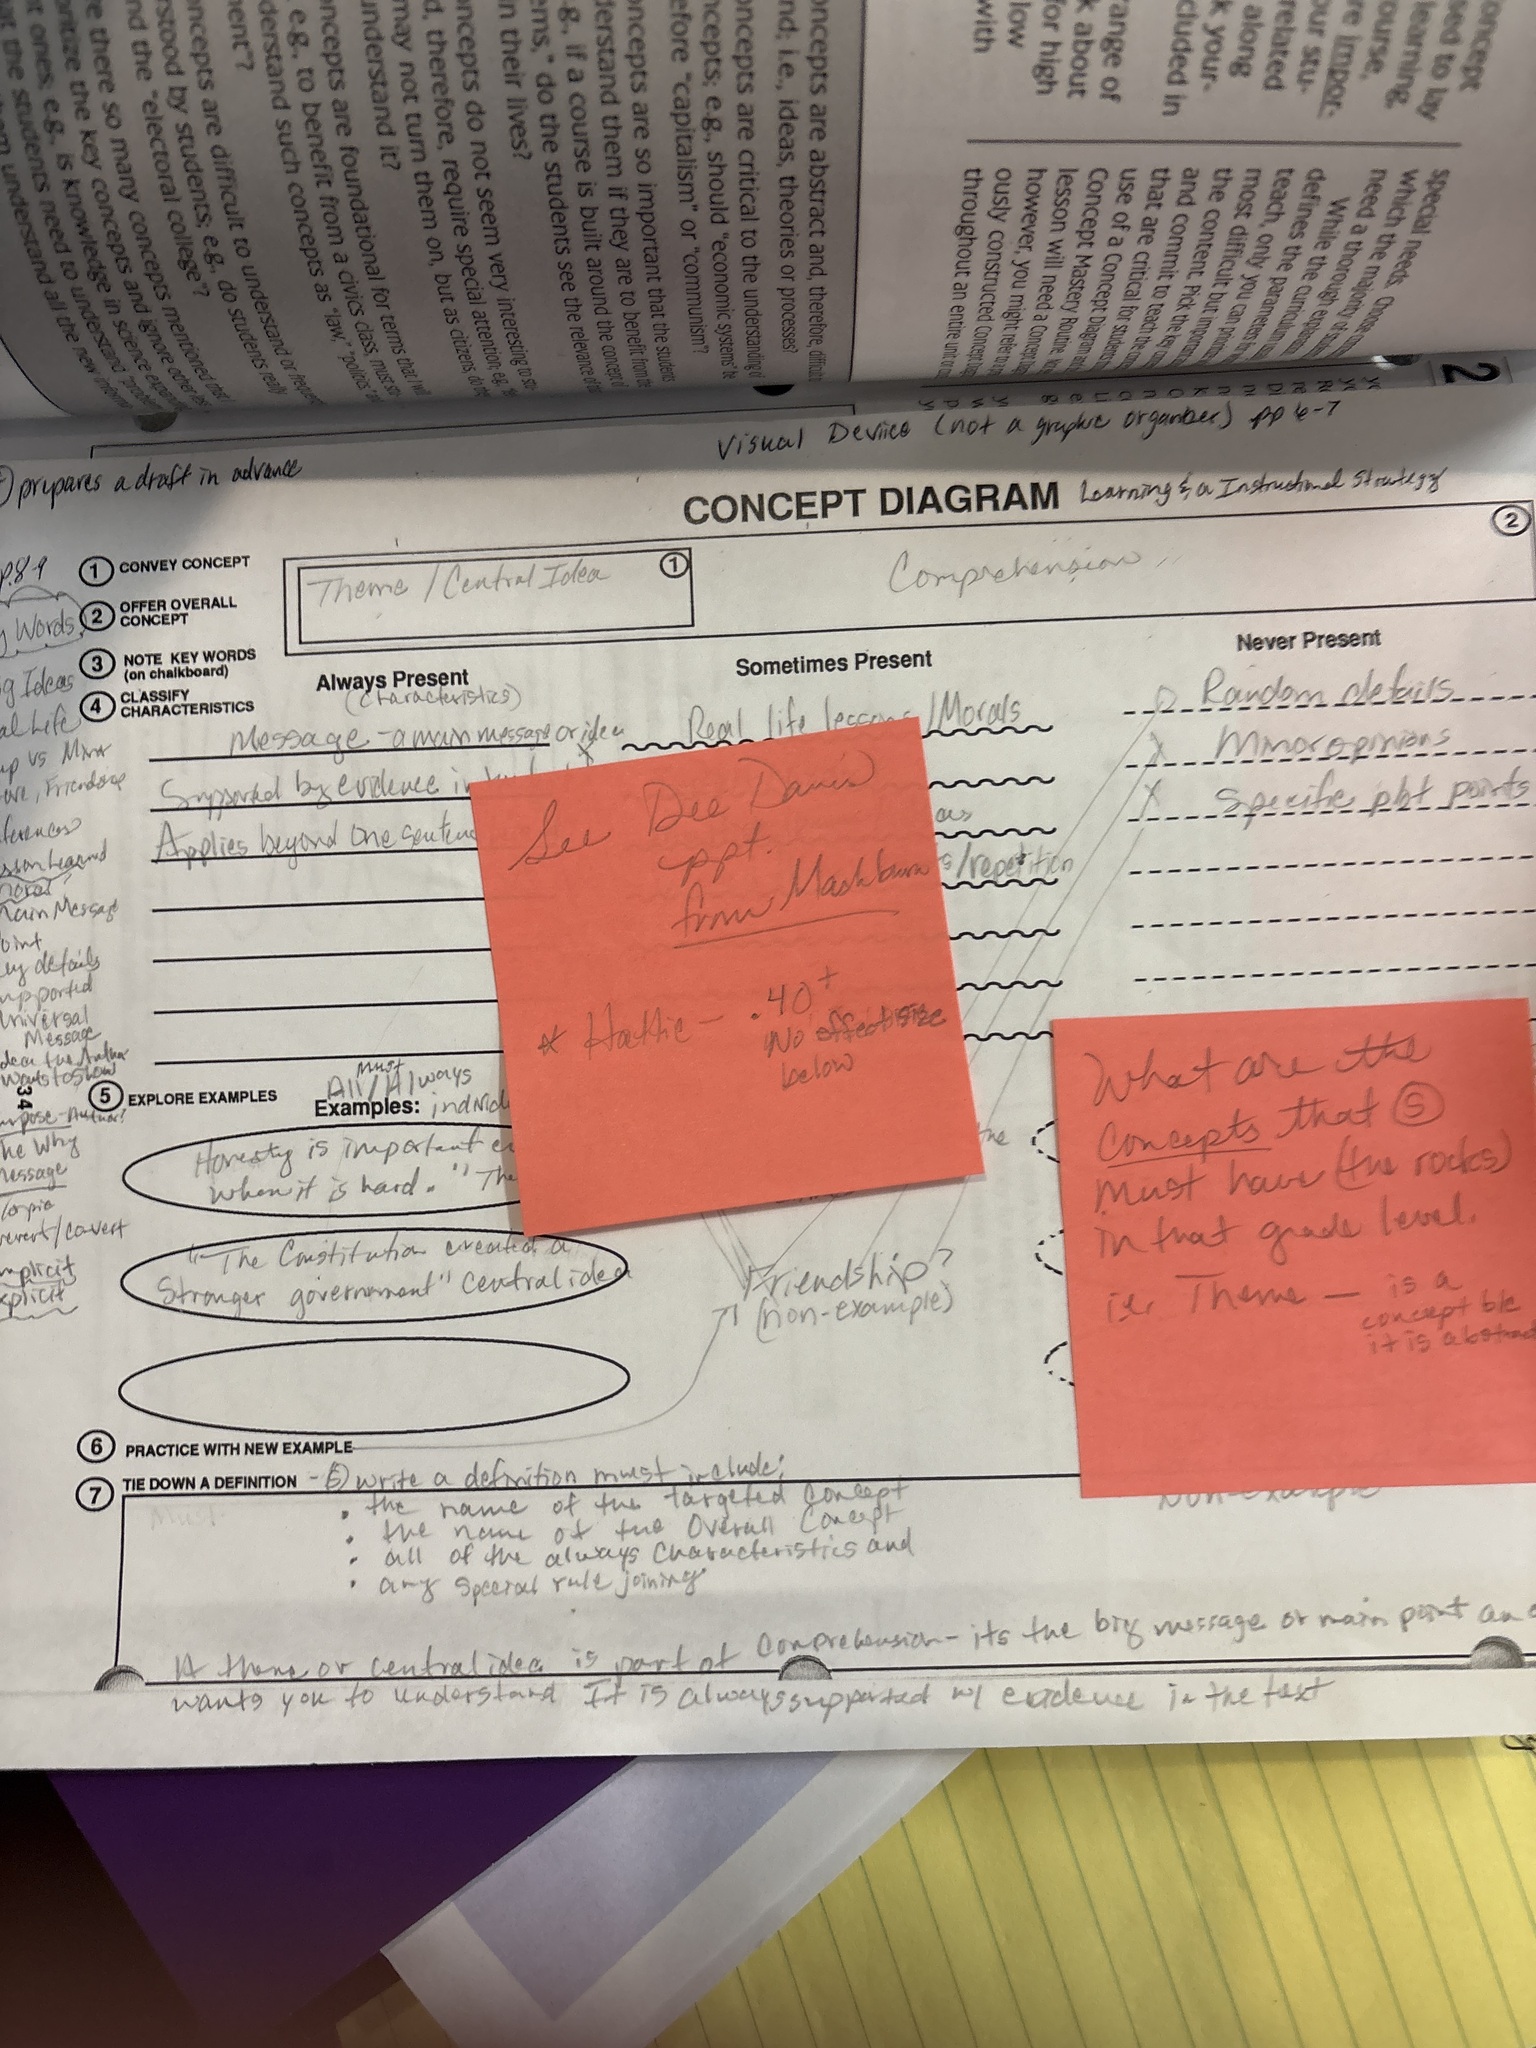 oncept
sed to lay
learning
ourse,
re impor-
our stu-
related
along
k your-
cluded in
range of
k about
for high
low
with
special needs. Choose
which the majority of
need a thorough
While the
defines the curriculum
teach, only you can pinpoint
most difficult but important
the content. Pick the key
and commit to teach the
that are critical for students
use of a Concept Diagram and
Concept Mastery Routine
lesson will need a Concept
however, you might refer to
ously constructed Concept
throughout an entire unit or
2
oncepts are abstract and, therefore, difficult
nd; i.e., ideas, theories or processes?
oncepts are critical to the understanding of
ncepts; e.g., should "economic systems" be
efore "capitalism" or "communism"?
oncepts are so important that the students
derstand them if they are to benefit from the
.g., if a course is built around the concept of
ems," do the students see the relevance of
n their lives?
oncepts do not seem very interesting to
d, therefore, require special attention; e.g.,
may not turn them on, but as citizens, do
understand it?
ncepts are foundational for terms that
e.g., to benefit from a civics class, must
derstand such concepts as "law," "politics"
ment"?
oncepts are difficult to understand or
rstood by students; e.g., do students really
nd the "electoral college"?
re there so many concepts mentioned that
oritize the key concepts and ignore other
nt ones; e.g., is knowledge in science
the students need to understand
them understand all the new
Visual Device (not a graphic organizer) pp 6-7
prepares a draft in advance
CONCEPT DIAGRAM Learning & a Instructional Strategy
p.8-9
1 CONVEY CONCEPT
Theme / Central Idea 1
Comprehension 2
2 OFFER OVERALL
CONCEPT
y Words
3 NOTE KEY WORDS
(on chalkboard)
g Ideas
4 CLASSIFY
CHARACTERISTICS
Always Present
(characteristics)
Sometimes Present
Never Present
Message - a main message or idea
Real life lessons / Morals
Random details
Supported by evidence in
Minor opinions
Applies beyond one sentenc
as
Specific plot points
s/repetition
al Life
up vs Minor
ove, Friendship
ferences
sson Learned
moral
Main Message
oint
ey details
upported
Universal
Message
dea the Author
wants to show
34
rpose - Author?
he Why
Message
Topic
overt/covert
mplicit
xplicit
See Dee Davis
ppt.
from Mashburn
* Hattie - .40+
No effect size
below
What are the
Concepts that S
must have (the rocks)
in that grade level.
i.e. Theme — is a
concept b/c
it is abstract
5 EXPLORE EXAMPLES
Must
All / Always
Examples: individ
Honesty is important ev
when it is hard." The
the
"The Constitution created a
Stronger government" central idea
Friendship?
(non-example)
6 PRACTICE WITH NEW EXAMPLE
7 TIE DOWN A DEFINITION - S write a definition must include:
• the name of the targeted concept
• the name of the Overall Concept
• all of the always Characteristics and
• any special rule joining
Must
Non-example
A theme or central idea is part of Comprehension - its the big message or main point an
wants you to understand It is always supported w/ evidence in the text